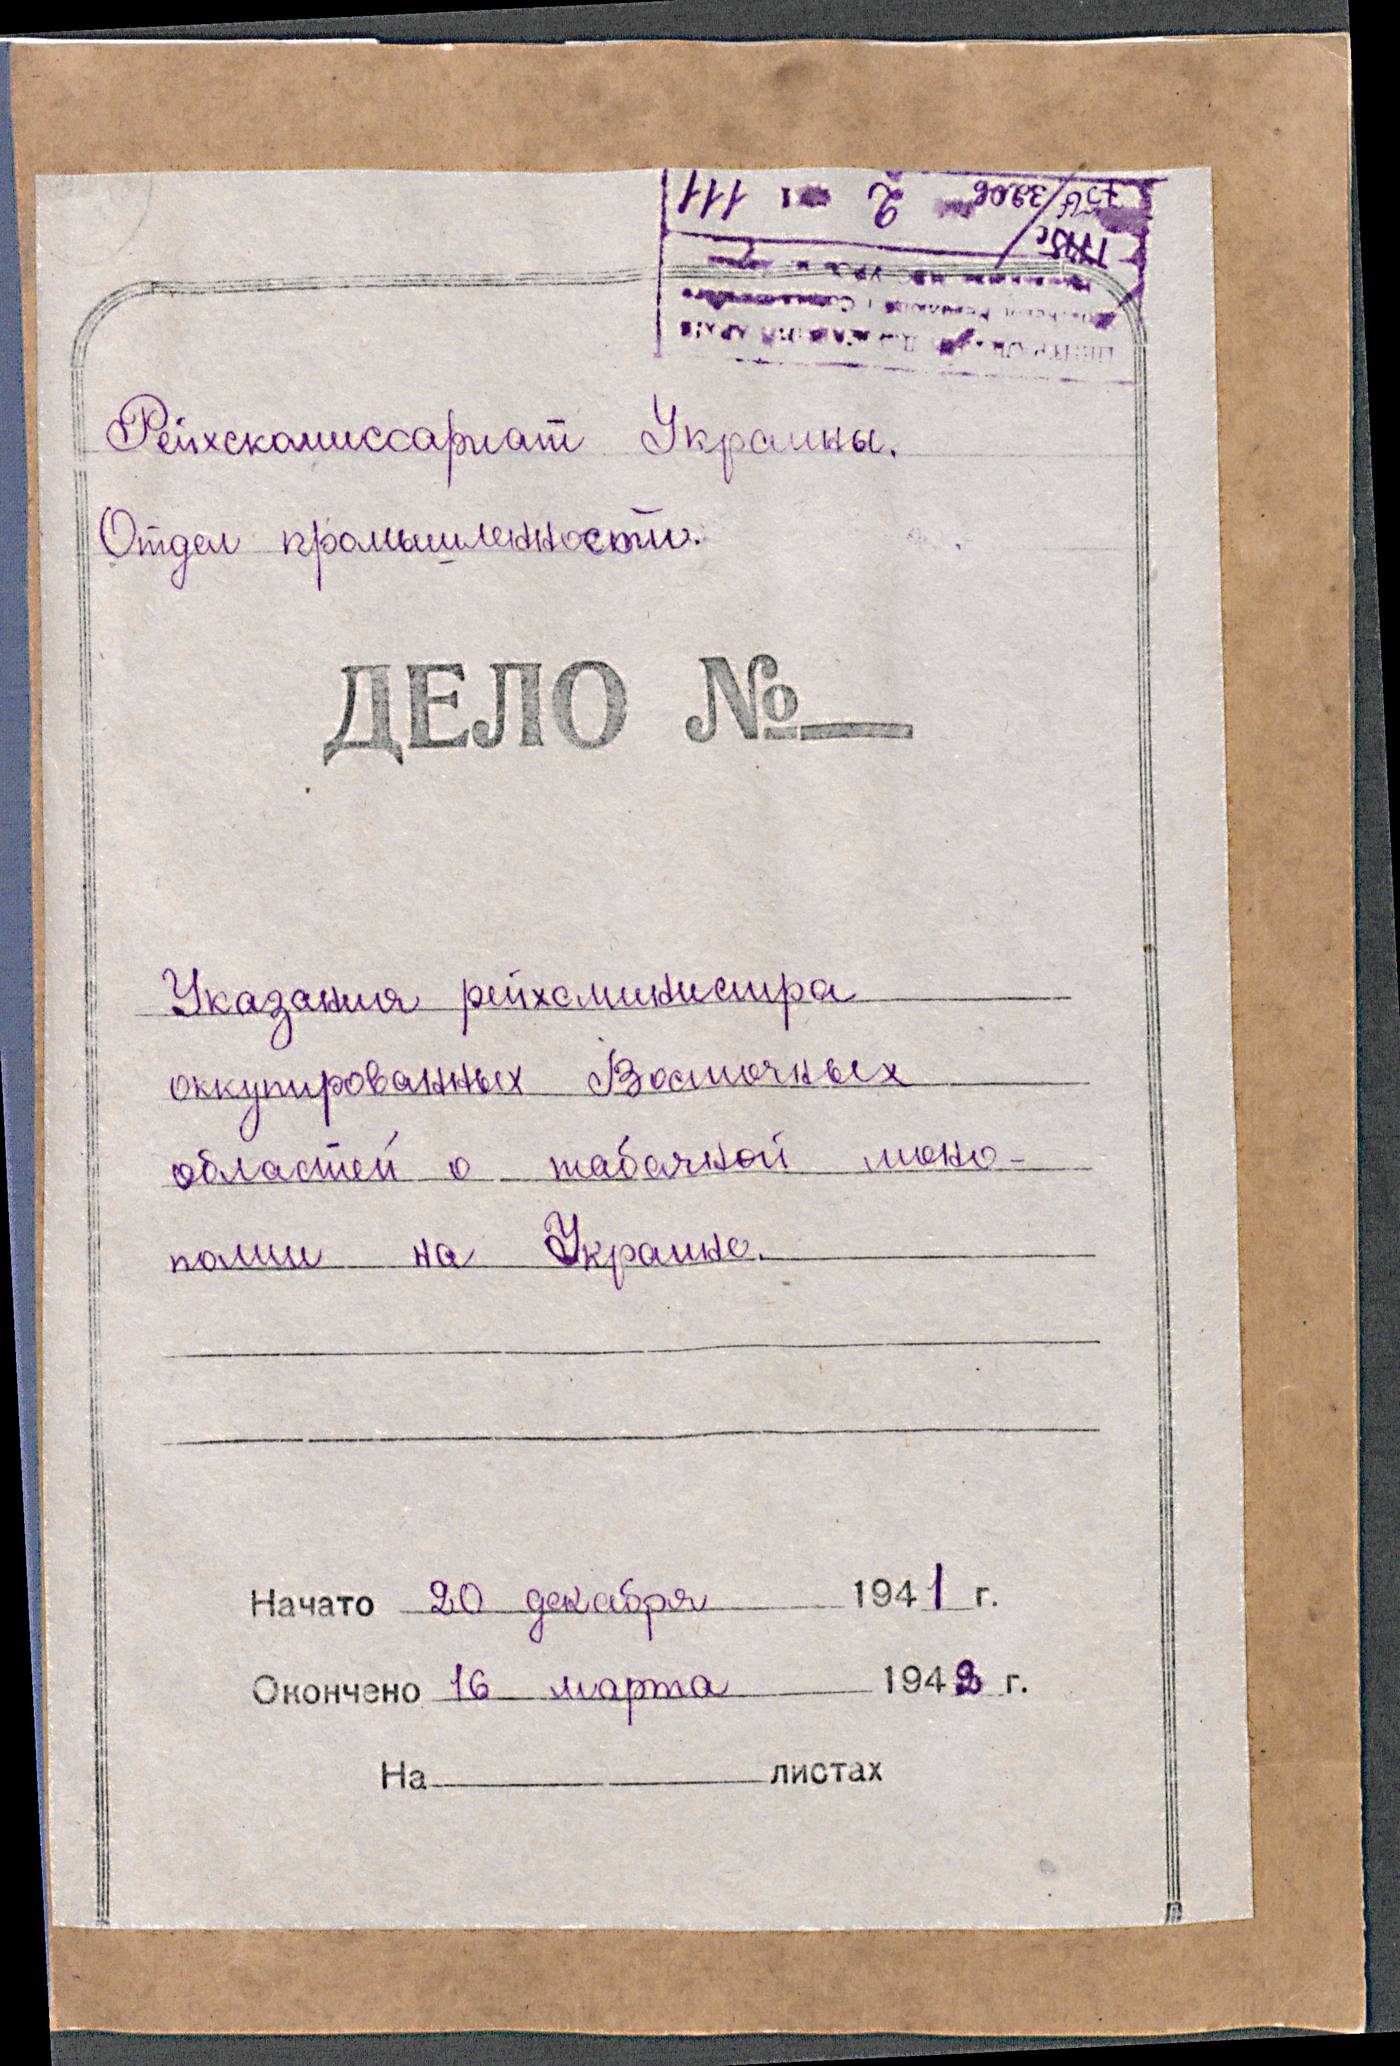 3206
2
111
Рейхскомиссариат Украины.
Отдел промышленности.
ДЕЛО №
Указания рейхсминистра
оккупированных Восточных
областей о табачной моно-
полии на Украине.
Начато 20 декабря 1941 г.
Окончено 16 марта 1942 г.
На листах